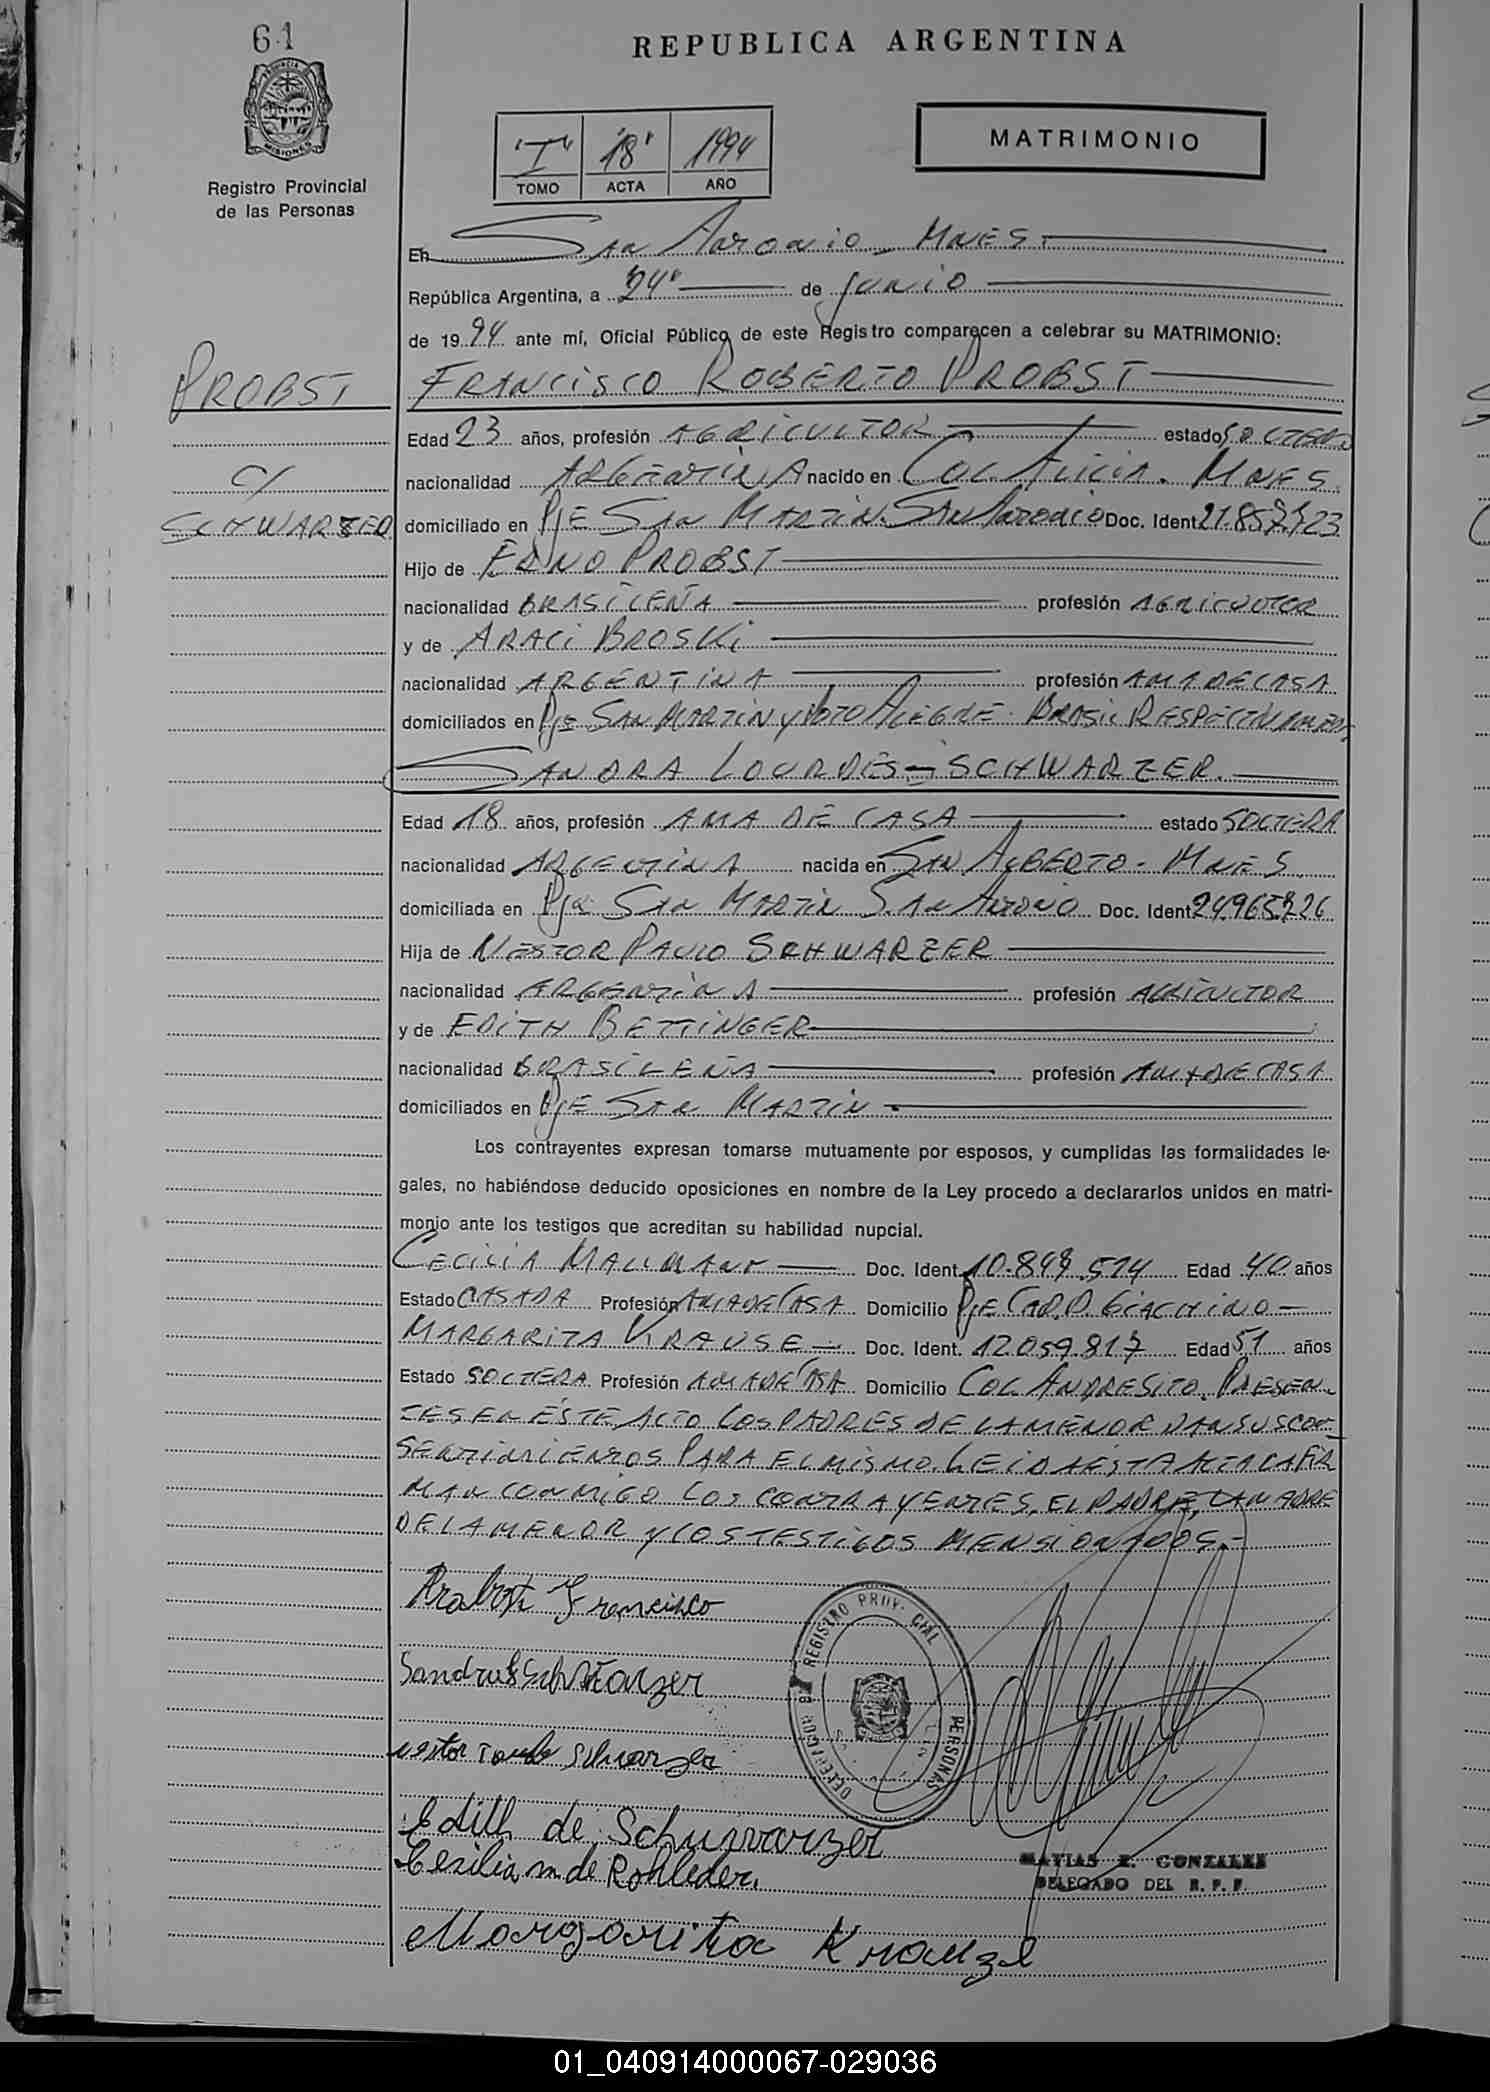 61
REPUBLICA ARGENTINA
PROVINCIA
MISIONES
Registro Provincial
de las Personas
"I" "18" 1994
TOMO ACTA AÑO
MATRIMONIO
En San Antonio - Mnes.
República Argentina, a 24" de junio
de 1994 ante mí, Oficial Público de este Registro comparecen a celebrar su MATRIMONIO:
PROBST
c/
SCHWARZER
FRANCISCO ROBERTO PROBST
Edad 23 años, profesión AGRICULTOR estado SOLTERO
nacionalidad ARGENTINA nacido en COL. ALICIA. MNES.
domiciliado en Pje SAN MARTIN. SAN ANTONIO Doc. Ident.
Hijo de ERNO PROBST
nacionalidad BRASILEÑA profesión AGRICULTOR
y de ARACI BROSKI
nacionalidad ARGENTINA profesión AMA DE CASA
domiciliados en Pje SAN MARTIN y PORTO ALEGRE - BRASIL RESPECTIVAMENTE
SANDRA LOURDES - SCHWARZER.
Edad 18 años, profesión AMA DE CASA estado SOLTERA
nacionalidad ARGENTINA nacida en SAN ALBERTO - MNES.
domiciliada en Pje SAN MARTIN SAN ANTONIO Doc. Ident 24.965.726
Hija de NESTOR PAULO SCHWARZER
nacionalidad ARGENTINA profesión AGRICULTOR
y de EDITH BETTINGER
nacionalidad BRASILEÑA profesión AMA DE CASA
domiciliados en Pje SAN MARTIN -
Los contrayentes expresan tomarse mutuamente por esposos, y cumplidas las formalidades le-
gales, no habiéndose deducido oposiciones en nombre de la Ley procedo a declararlos unidos en matri-
monio ante los testigos que acreditan su habilidad nupcial.
CECILIA Doc. Ident. Edad 40 años
Estado CASADA Profesión AMA DE CASA Domicilio Pje CAP. P. GIACHINO -
MARGARITA KRAUSE - Doc. Ident. 12.059.817 Edad 51 años
Estado SOLTERA Profesión AMA DE CASA Domicilio COL. ANDRESITO. PRESEN-
TES EN ÉSTE ACTO LOS PADRES DE LA MENOR DAN SUS CON-
SENTIMIENTOS PARA EL MISMO. LEIDA ÉSTA ACTA LA FIR
MAN CONMIGO LOS CONTRAYENTES, EL PADRE, LA MADRE
DE LA MENOR Y LOS TESTIGOS MENSIONADOS.-
Probst Francisco
Sandra L Schwarzer
Nestor Paulo Schwarzer
Edith de Schwarzer
Cecilia m. de Rohleder.
Margarita Krauze
REGISTRO PROV. CIAL
PERSONAS
MATIAS E. GONZALEZ
DELEGADO DEL R. P. P.
01_040914000067-029036